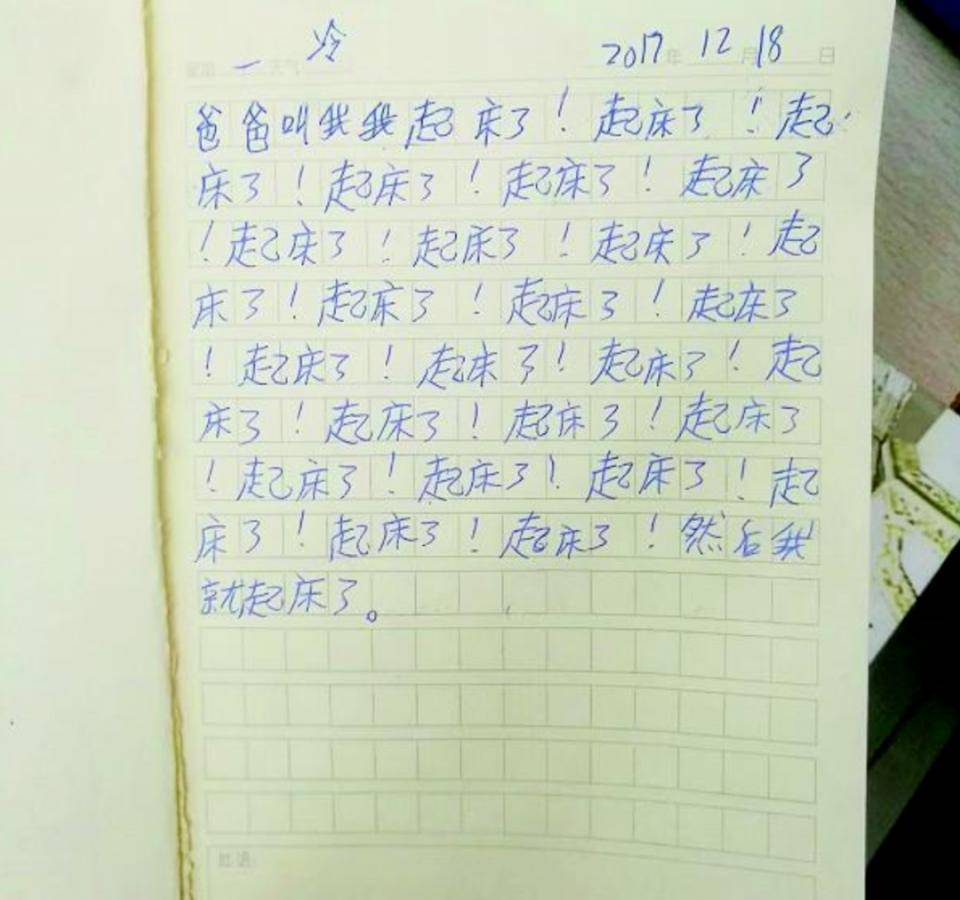 星期 一 天气 冷 2017年 12月18日
爸爸叫我我起床了！起床了！起
床了！起床了！起床了！起床了
！起床了！起床了！起床了！起
床了！起床了！起床了！起床了
！起床了！起床了！起床了！起
床了！起床了！起床了！起床了
！起床了！起床了！起床了！起
床了！起床了！起床了！然后我
就起床了。